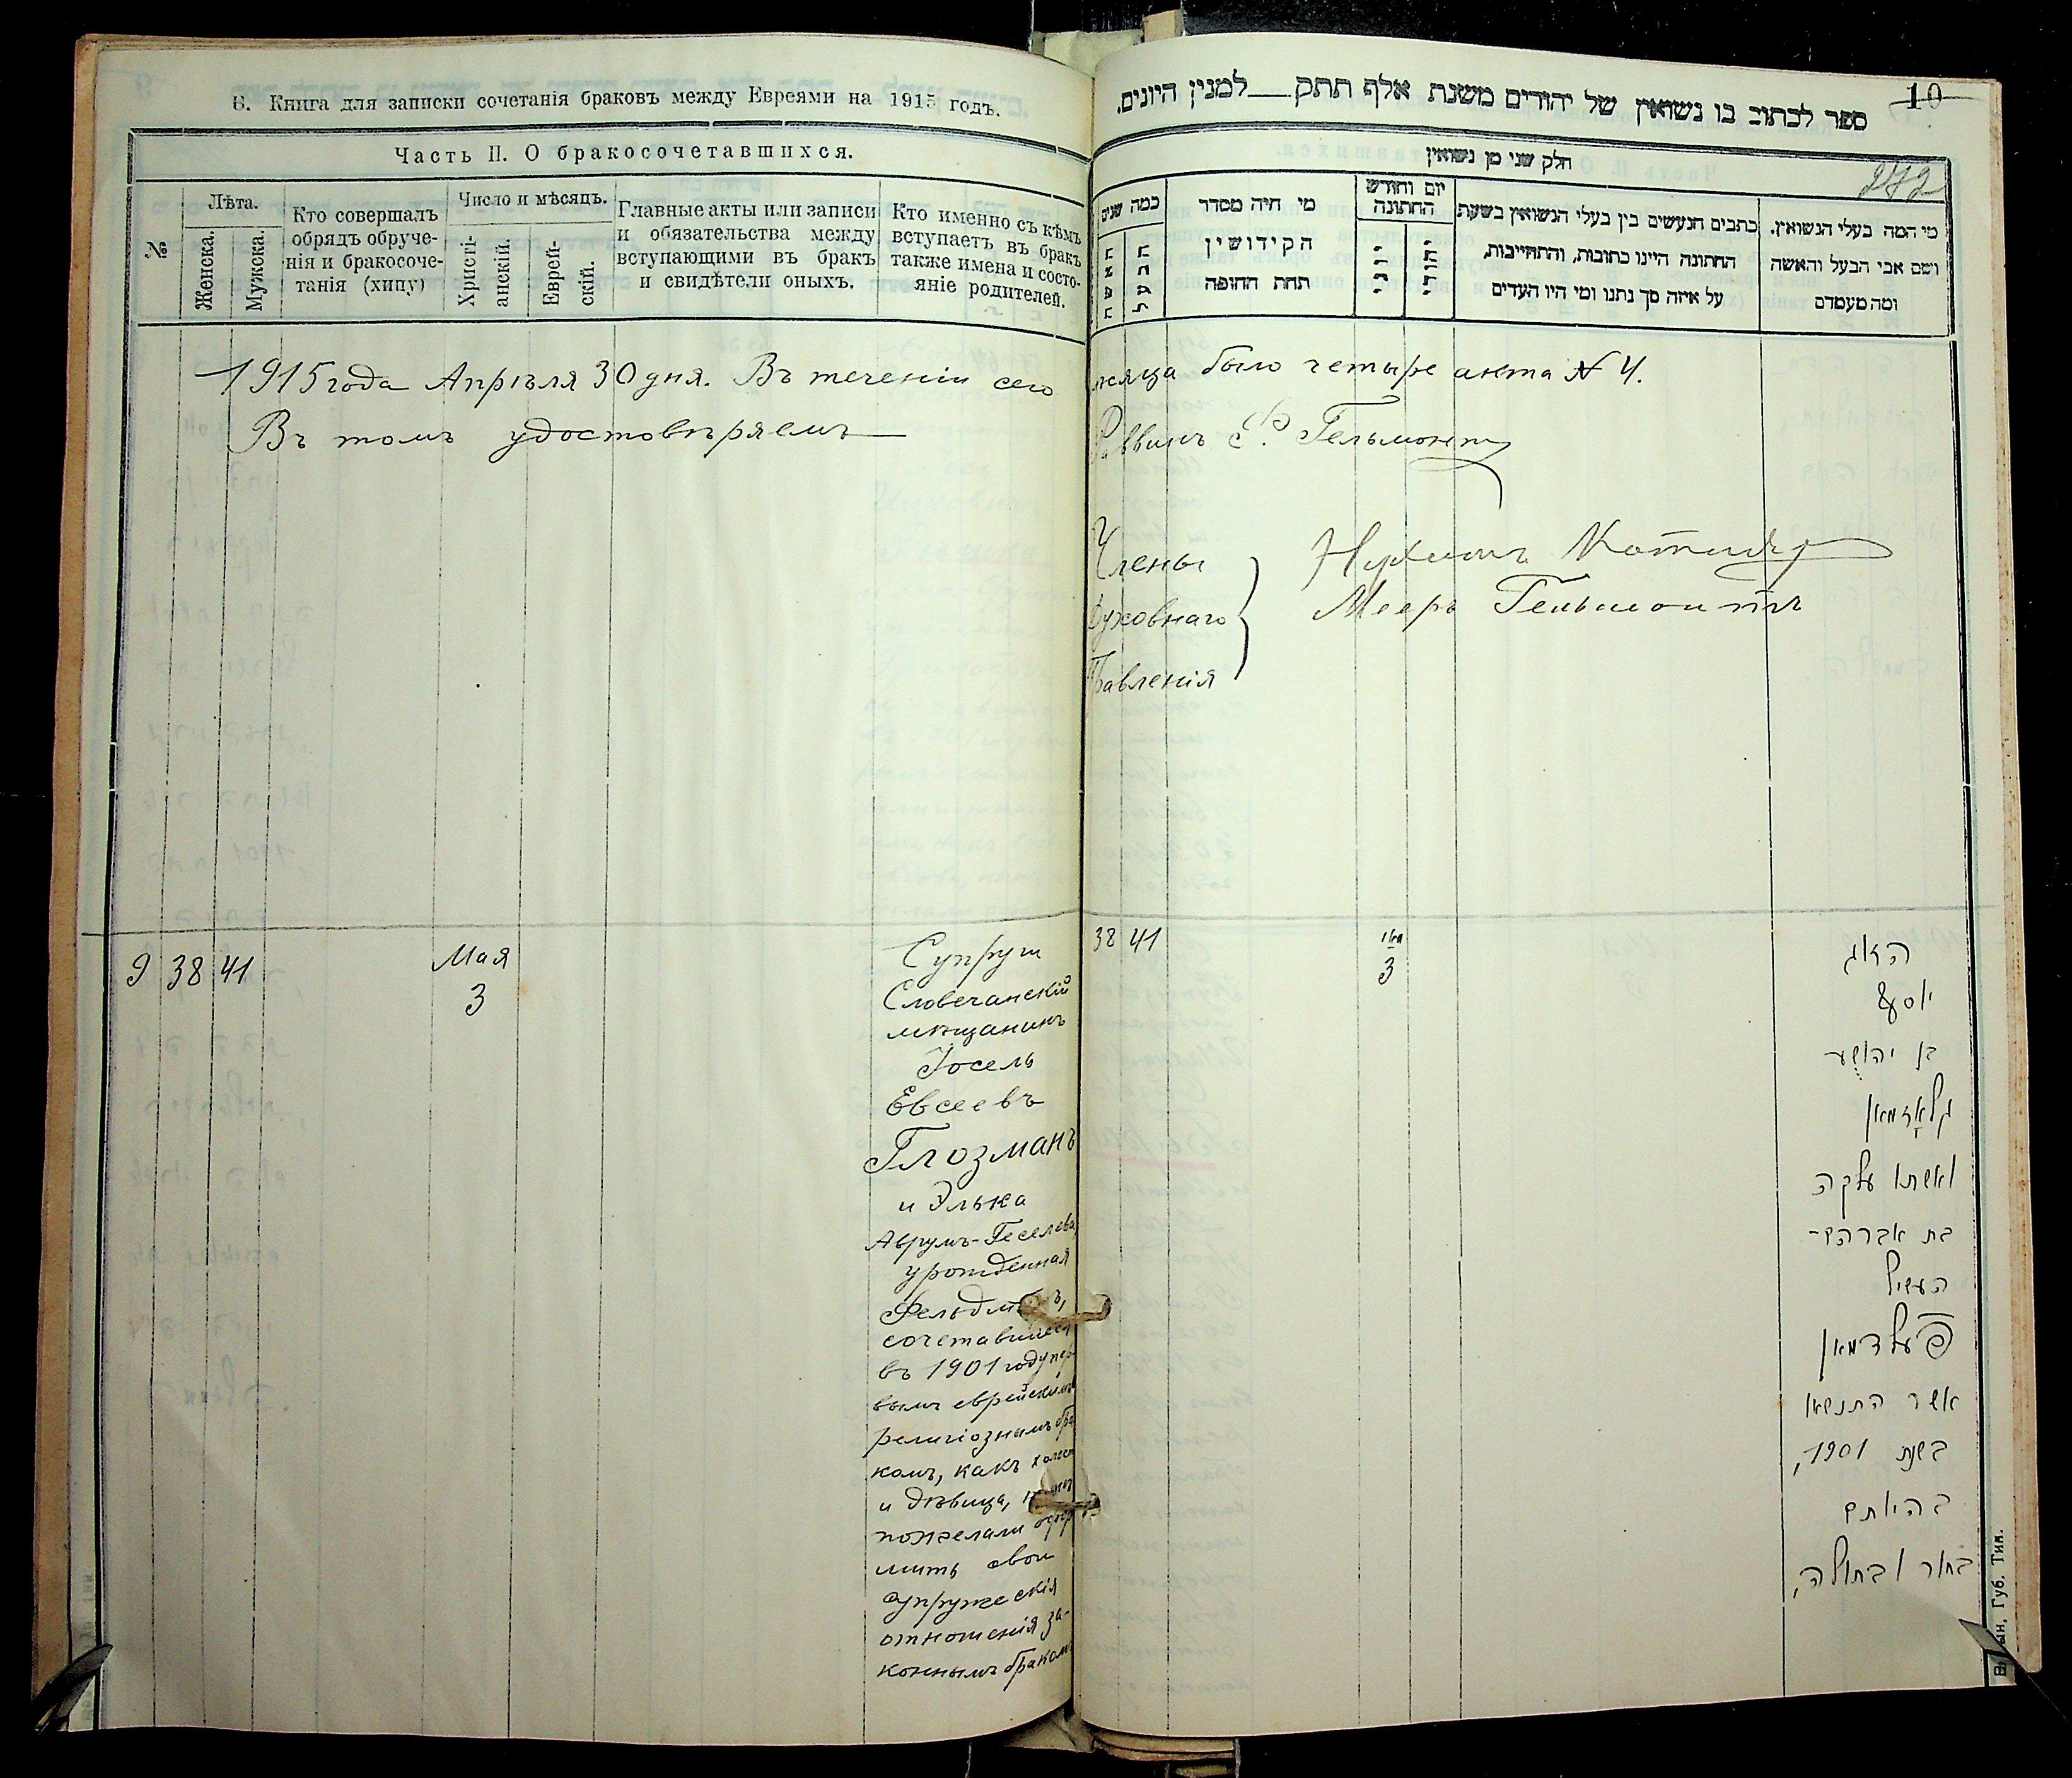 6. Книга для записки сочетанія браковъ между Евреями на 1915 годъ.
Часть II. О бракосочетавшихся.
№
Лѣта.
Женска.
Мужска.
Кто совершалъ
обрядъ обруче-
нія и бракосоче-
танія (хипу)
Число и мѣсяцъ.
Христі-
анскій.
Еврей-
скій.
Главные акты или записи
и обязательства между
вступающими въ бракъ
и свидѣтели оныхъ.
Кто именно съ кѣмъ
вступаетъ въ бракъ
также имена и состо-
яніе родителей.
1915 года Апрѣля 30 дня. Въ теченіи сего
Въ томъ удостовѣряемъ
9 38 41
Мая
3
Супруги
Словечанскій
мѣщанинъ
Іосель
Евсеевъ
Глозманъ
и Элька
Аврумъ-Геселева,
урожденная
сочетавшіеся
въ 1901 году пер-
вымъ еврейскимъ
религіознымъ бра
комъ, какъ холост
и дѣвица,
пожелали
мить свои
супружескія
отношенія за-
коннымъ бракомъ
ספר לכתוב בו נשואין של יהודים משנת אלף תתק___למנין היונים.
10
272
חלק שני מן נשואין
כמה שנים
מי היה מסדר
הקידושין
תחת החופה
יום וחודש
החתונה
כתבים הנעשים בין בעלי הנשואין בשעת
החתונה היינו כתובות, והתחייבות,
על איזה סך נתנו ומי היו העדים
מי המה בעלי הנשואין.
ושם אבי הבעל והאשה
ומה מעמדם
мѣсяца было четыре акта № 4.
Раввинъ Гельмонтъ
Члены
Духовнаго
Правленія
Нухимъ
Мееръ Гельмонтъ
38 41
מאי
3
הזוג
יוסף
בן יהושע
גלאָזמאן
ואשתו עלקה
בת אברהם-
העשיל
פעלדמאן
אשר התנשאו
בשנת 1901,
בהיותם
בחור ובתולה,
Губ. Тип.